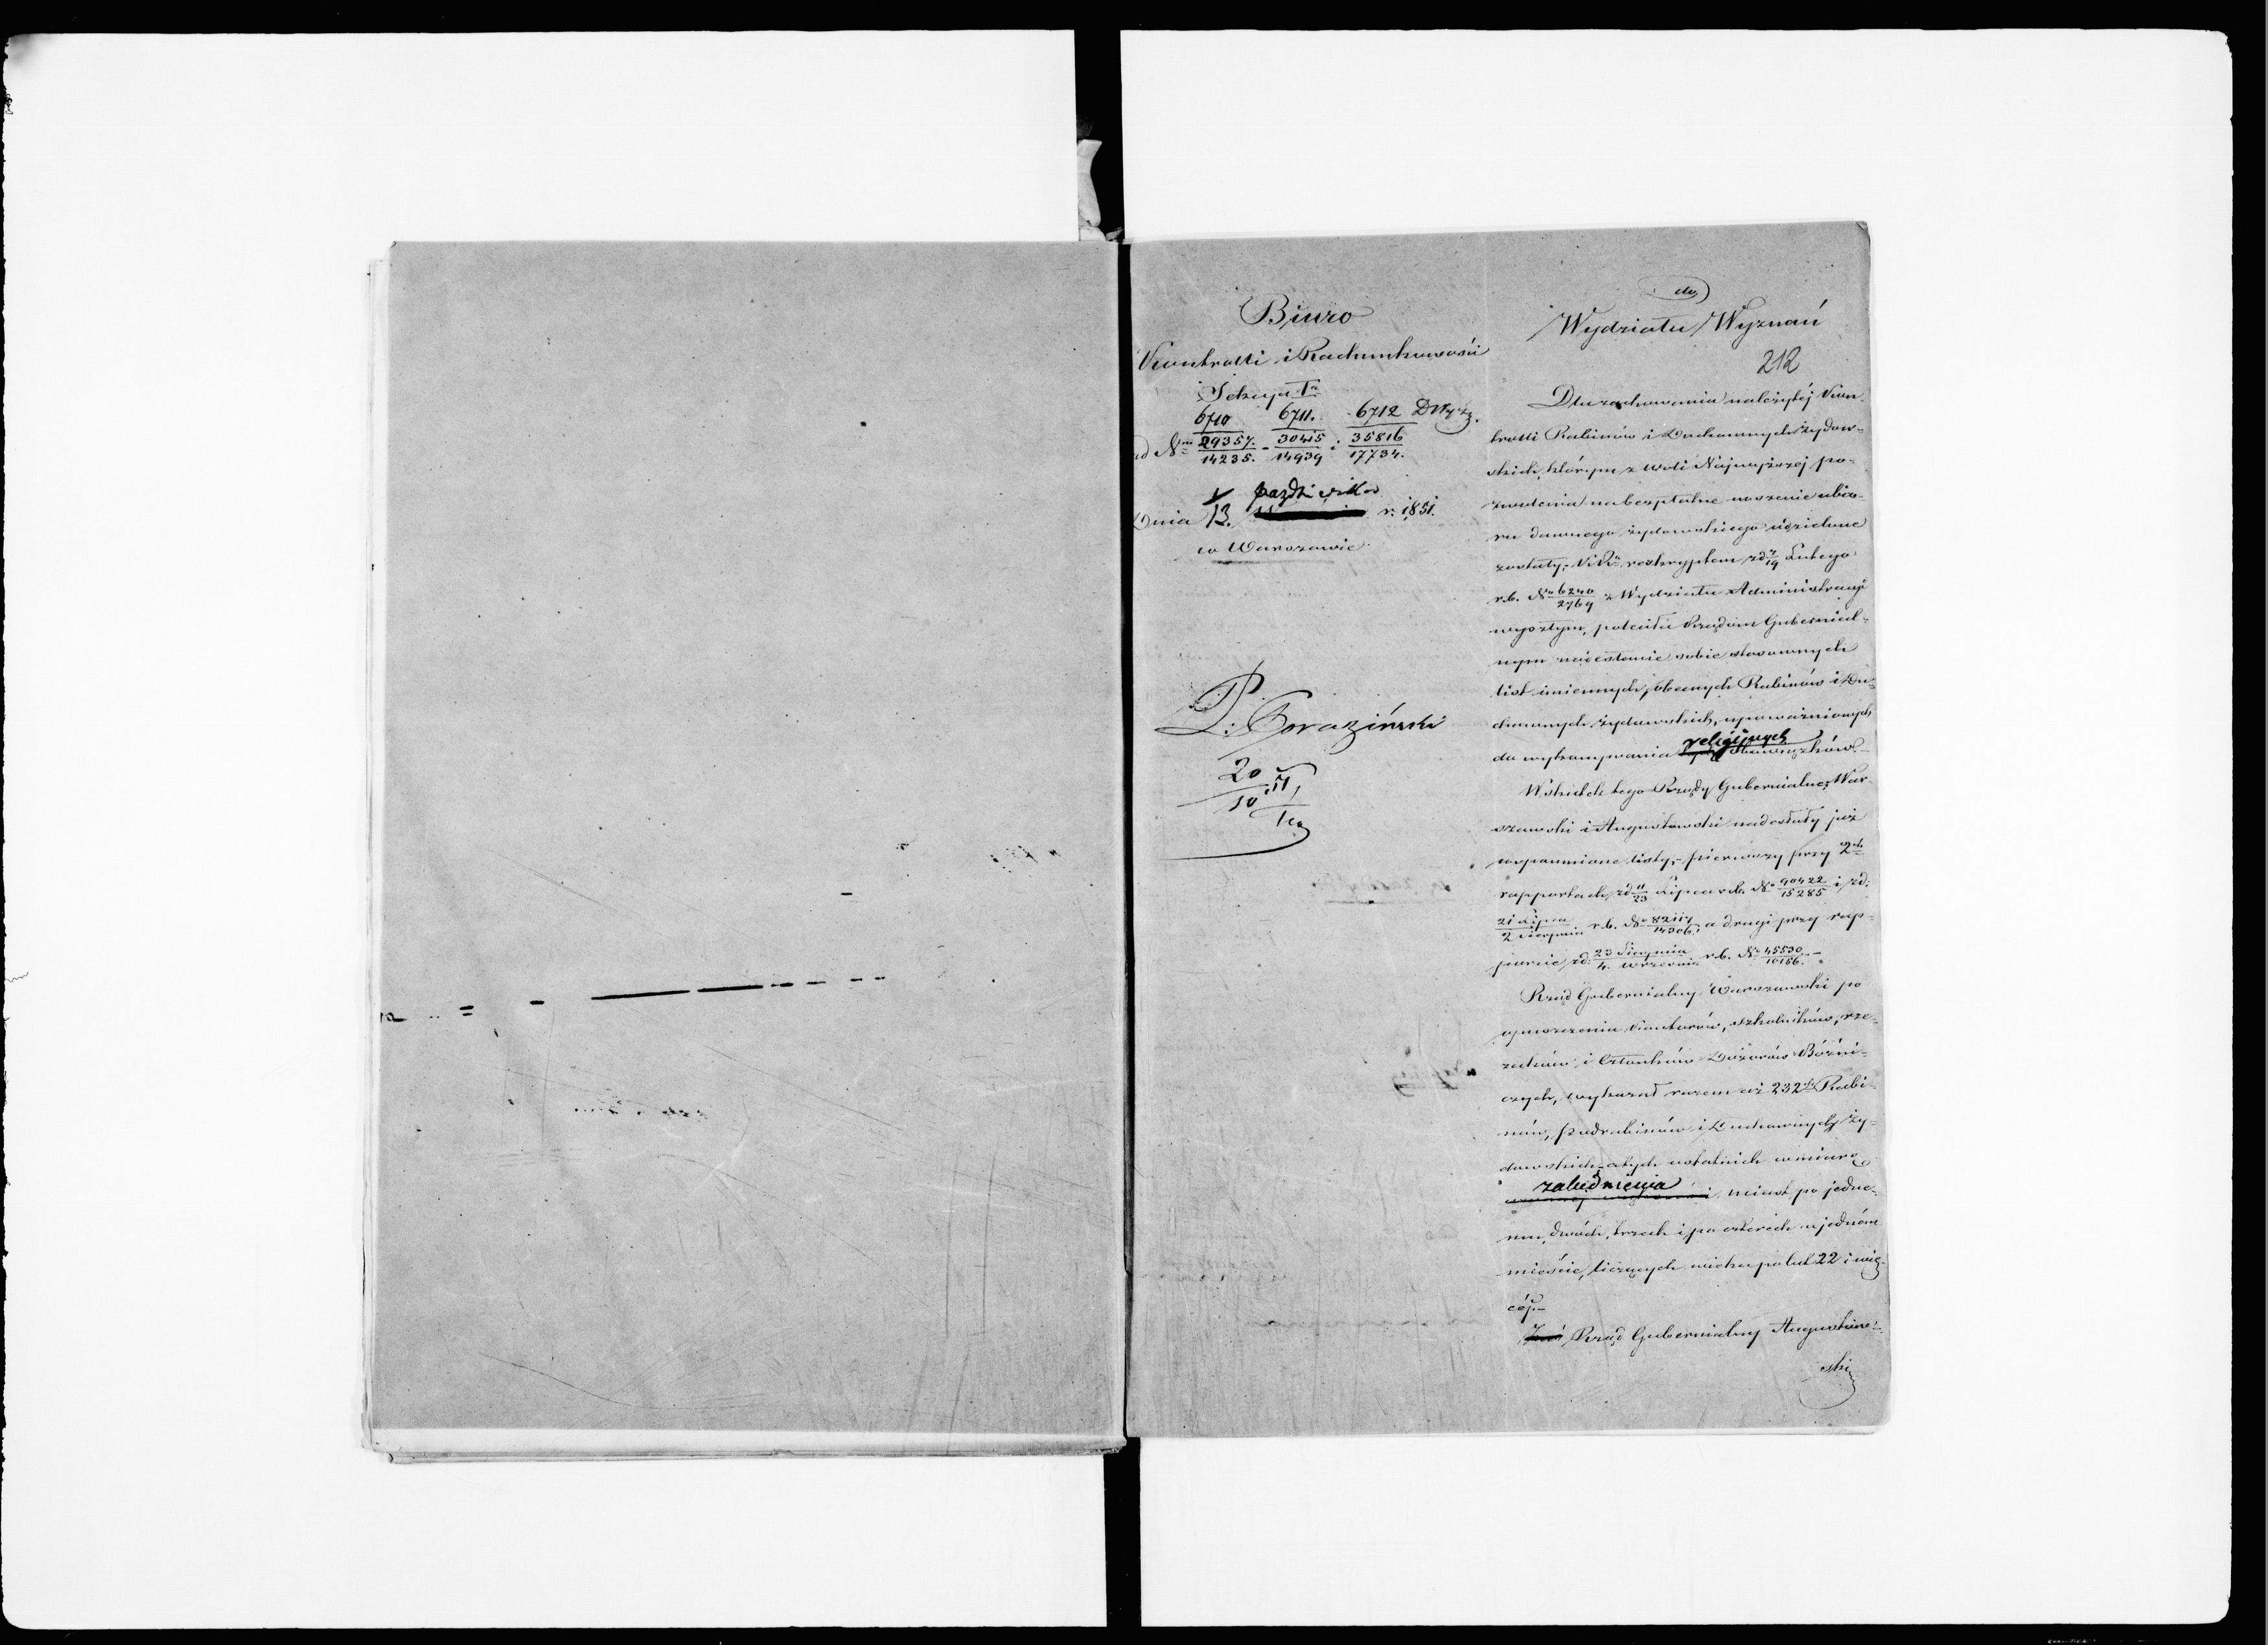 Biuro
Kontrolli i Rachunkowości
Sekcya Iа
6710 6711. 6712 DWyz.
ad Nrm 29357. - 30415 i 35816
14235. 14939 17734.
1 Paździer
Dnia 13. r. 1851.
w Warszawie
P. Goraziński
20
10
do
Wydziału Wyznań
212
Dla zachowania należytéj Kon-
trolli Rabinów i Duchownych żydow-
skich, którym z woli Najwyższéj po-
zwolenia na bezpłatne noszenie ubio-
ru dawnego żydowskiego udzielone
zostały, reskryptem z d. 7/19 Lutego
r.b. No 6240/2769 z Wydziału Administracyi
wyszłym, poleciła Rządom Gubernial-
nym nadesłanie sobie stosownych
list imiennych, obecnych Rabinów i Du-
chownych żydowskich, upoważnionych
do wykonywania religijnych obowiązków.-
W skutek tego Rządy Gubernialne War-
szawski i Augustowski nadesłały już
wspomnione listy,- pierwszy przy 2ch
rapportach z d. 11/23 Lipca r.b. No 90422/15285 i z d.
21 Lipca/2 Sierpnia r.b. No 82117/14306, a drugi przy rap-
porcie z d. 23 Sierpnia/4. Września r.b. No 45530/10156.-
Rząd Gubernialny Warszawski po
opuszczeniu Kantorów, szkolników, rze-
zaków i Członków Dozorów Bóżni-
czych, wykazał razem aż 232ch Rabi-
nów, podrabinów i Duchownych ży-
dowskich, a tych ostatnich w miarę
zaludnienia miast po jedne-
mu, dwóch, trzech i po czterech w jedném
mieście, liczących wieku po lat 22 i wię-
céj.-
Rząd Gubernialny Augustow-
ski